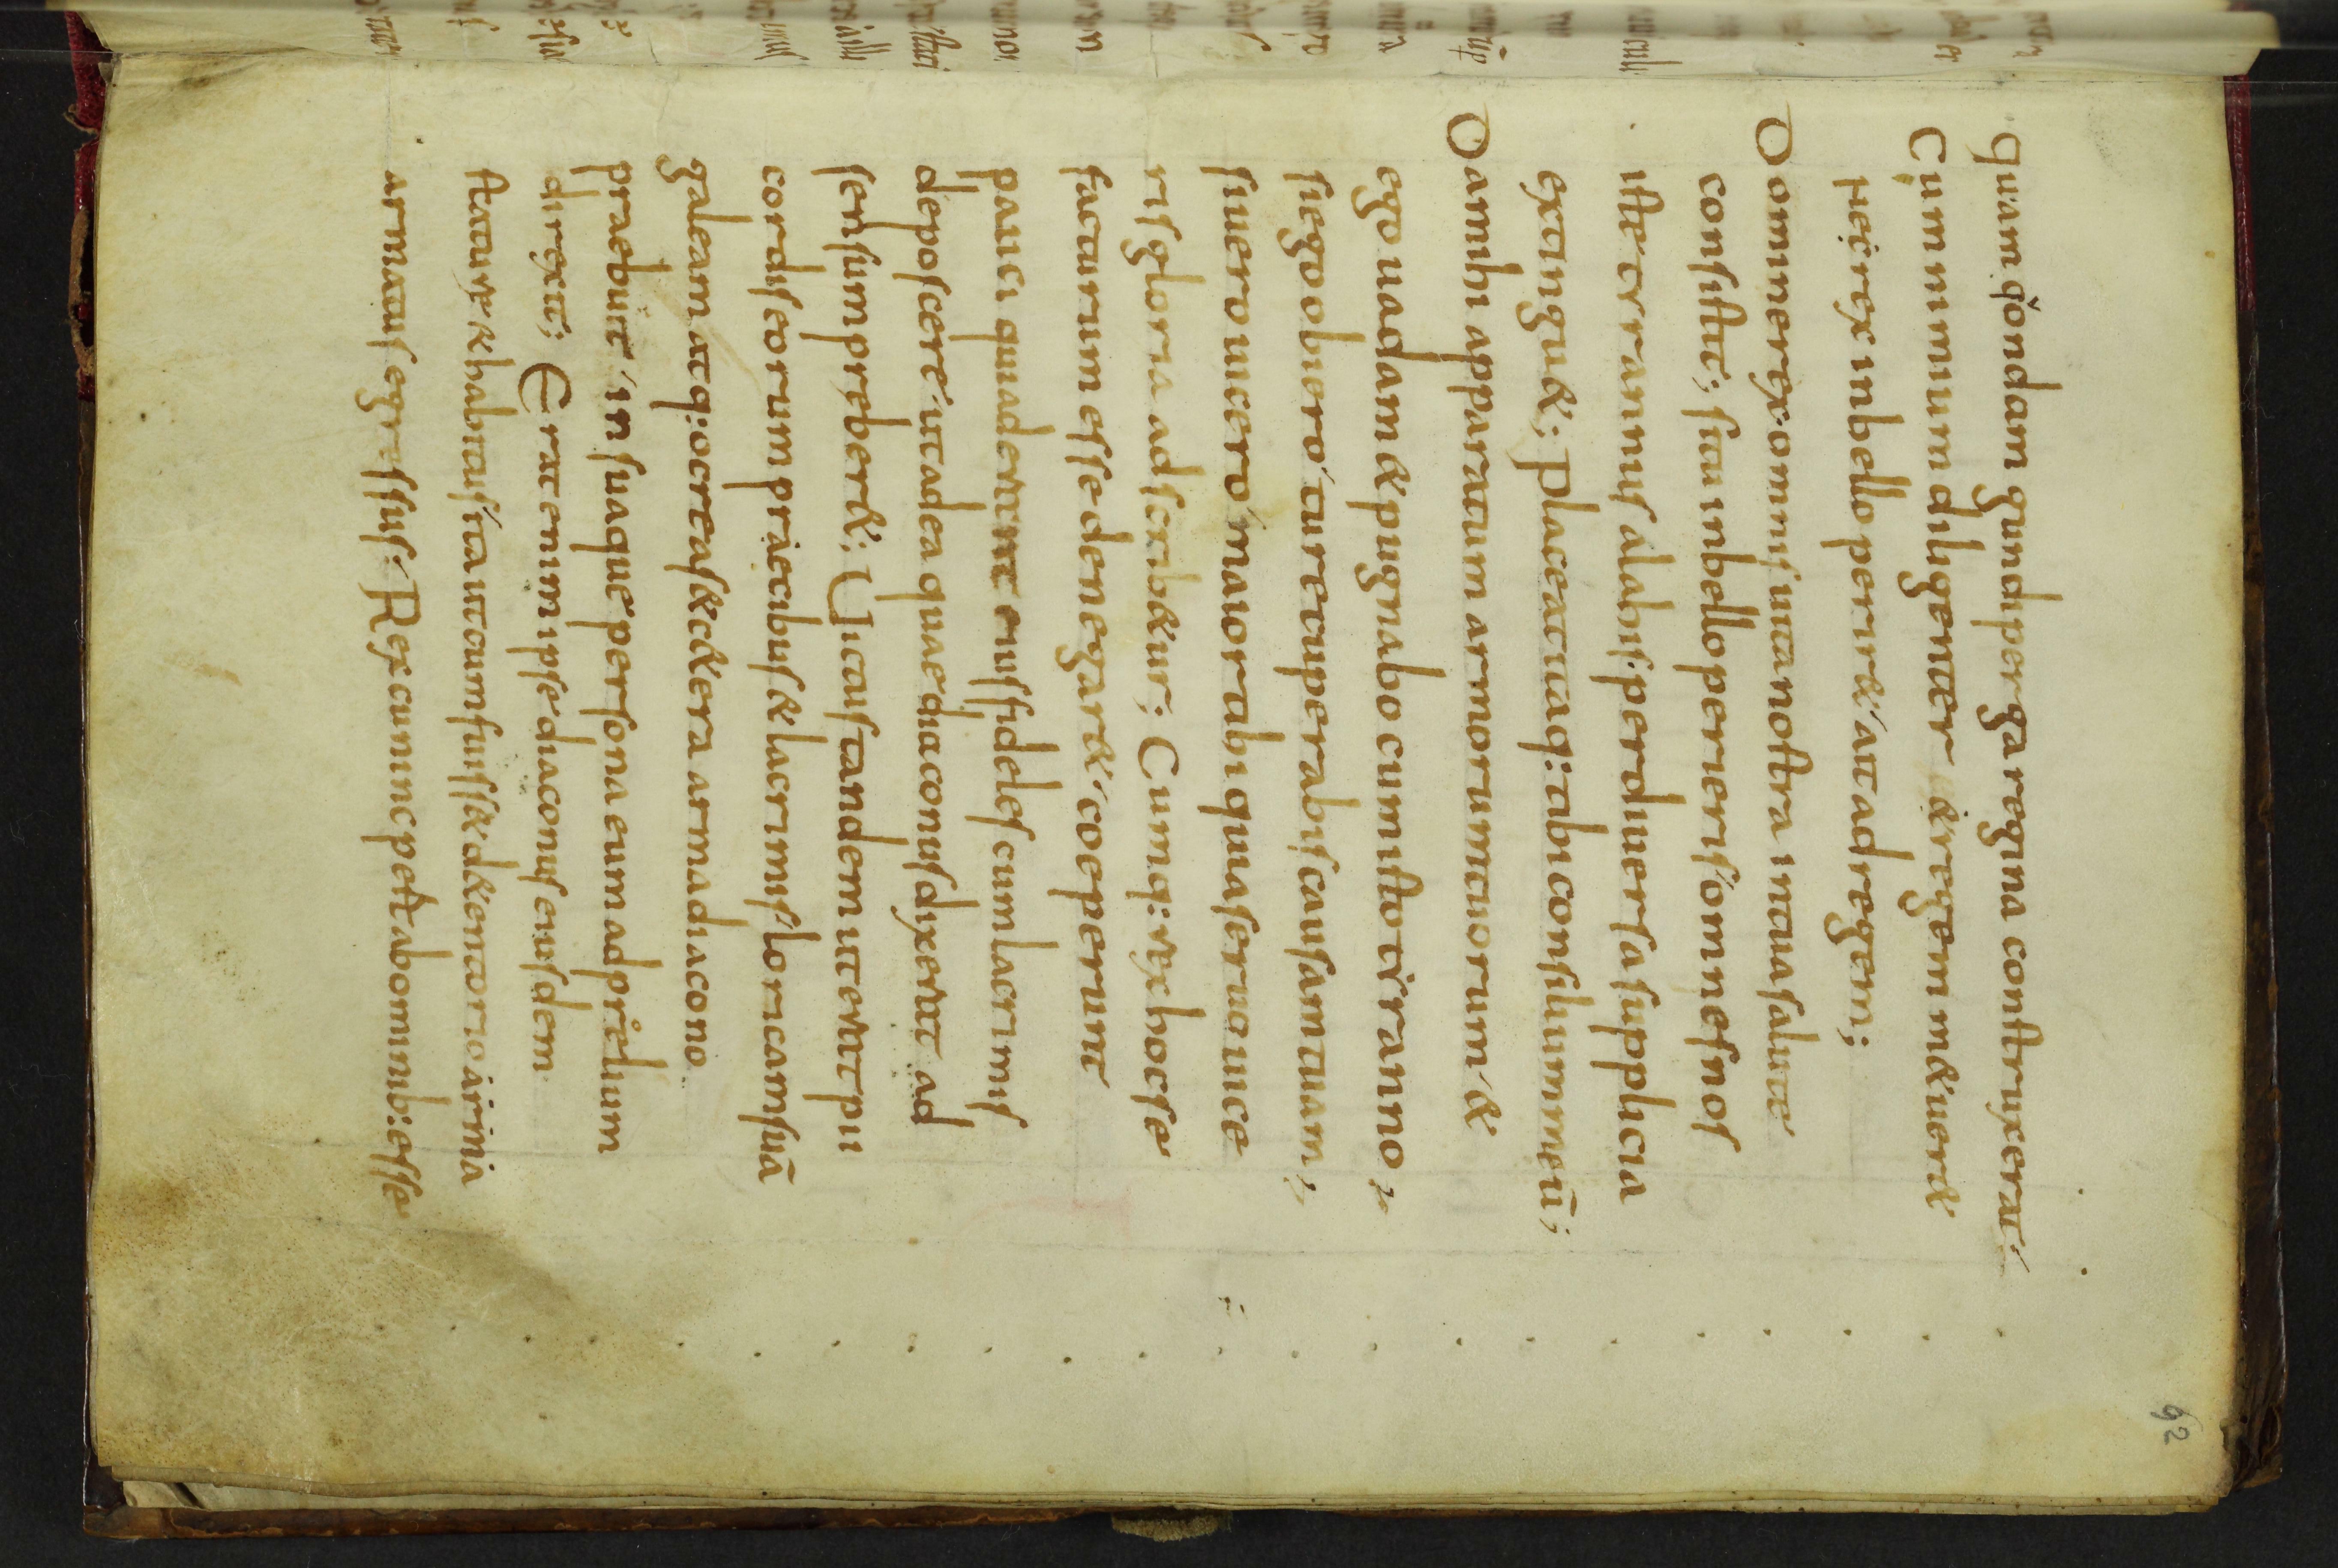 quam qondam gundiperga regina construxerat'
Cum nimium diligenter & regem m&uer&
nei rex in bello perir&' ait ad regem;
Domine rex omnis uita nostra intua salute
consistit; situ inbello perieris' omnes nos
iste tyrannus alahis: per diuersa supplicia
extingu&; Placeat itaq: tibi consilium meū;
Da mihi apparatum armorum tuorum' &
ego uadam & pugnabo cum isto tyranno;
si ego obiero' tu recuperabis causam tuam;
si uero uicero' maior tibi quia seruo uice
ris gloria adscrib&ur; Cumq: rex hoc se
facturum esse denegar&' coeperunt
pauci qui aderant eius fideles cum lacrimis
deposcere' ut ad ea quae diaconus dixerat ad
sensum preber&; Uictus tandem ut erat pii
cordis eorum praecibus & lacrimis loricam suā
galeam atq: ocreas & c&era arma diacono
praebuit' in suaque persona eum ad prelium
direxit; Erat enim ipse diaconus eiusdem
staturę & habitus' ita ut cum fuiss& de tentorio arma
armatus egressus: Rex cunincpest ab omnib: esse
92